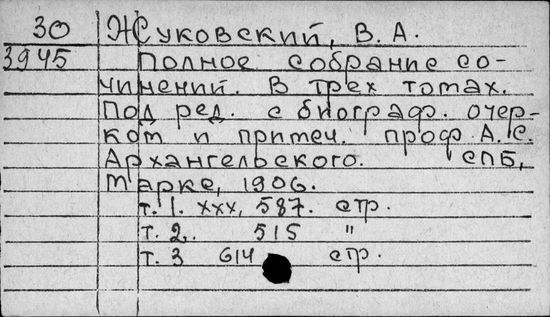 30 Жуковский, В. А.
3945 Полное собрание со-
чинений. В трех томах.
Под ред. с биограф. очер-
ком и примеч. проф А. С.
Архангельского. СПБ,
Марке, 1906.
т. 1. XXX, 587. стр.
т. 2. 515 "
т. 3 614 стр.